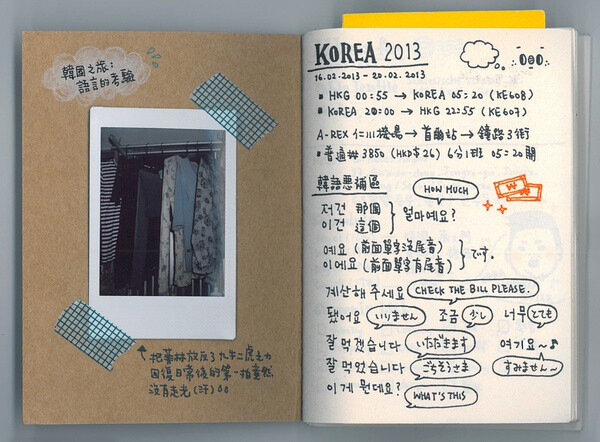 韓國之旅:
語言的考驗
把菲林放反了九牛二虎之力
回復日常後的第一拍竟然
沒有走光(汗)
KOREA 2013
16.02.2013 - 20.02.2013
HKG 00:55 → KOREA 05:20 (KE608)
KOREA 20:00 → HKG 22:55 (KE607)
A-REX 仁川機場 → 首爾站 → 鐘路3街
普通₩3850 (HKD$26) 6分1班 05:20開
韓語惡補區
HOW MUCH
저건 那個
이건 這個
얼마예요?
예요 (前面單字沒尾音)
이에요 (前面單字有尾音)
です.
계산해 주세요 CHECK THE BILL PLEASE.
됐어요 いりません 조금 少し 너무 とても
잘 먹겠습니다 いただきます 여기요~♪
잘 먹었습니다 ごちそうさま すみません~
이게 뭔데요? WHAT'S THIS